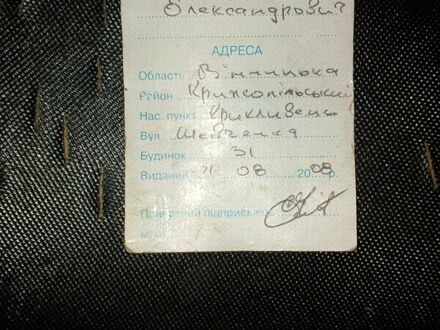 Олександрович
АДРЕСА
Область Вінницька
Район Крижопільський
Нас. пункт Крикливець
Вул. Шевченка
Будинок 31
Виданий 21 08 2008 р.
Приватний підприємець
м.